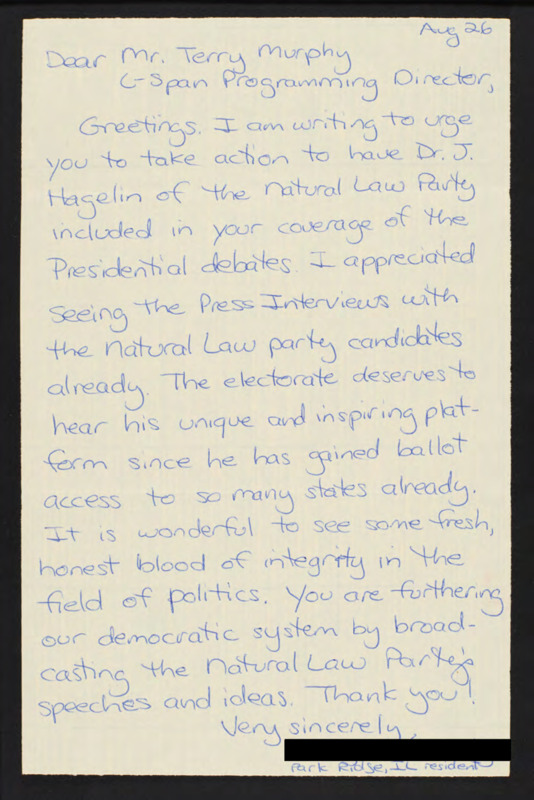 Aug 26
Dear Mr. Terry Murphy
C-Span Programming Director,
Greetings. I am writing to urge
you to take action to have Dr. J.
Hagelin of the Natural Law Party
included in your coverage of the
Presidential debates. I appreciated
seeing the Press Interviews with
the Natural Law party candidates
already. The electorate deserves to
hear his unique and inspiring plat-
form since he has gained ballot
access to so many states already.
It is wonderful to see some fresh,
honest blood of integrity in the
field of politics. You are furthering
our democratic system by broad-
casting the Natural Law Party's
speeches and ideas. Thank you!
Very sincerely,
Park Ridge, IL resident